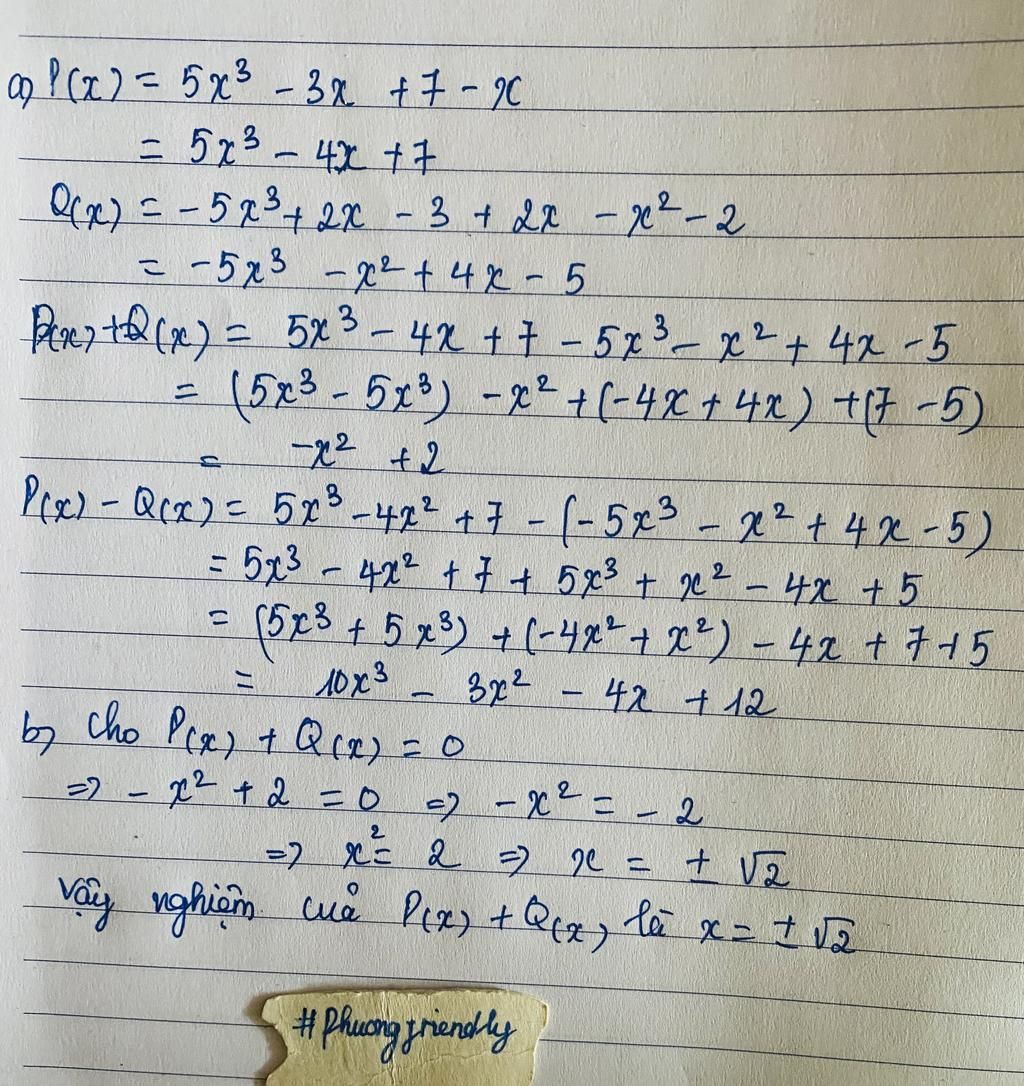 a) P(x) = 5x³ - 3x + 7 - x
= 5x³ - 4x + 7
Q(x) = -5x³ + 2x - 3 + 2x - x² - 2
= -5x³ - x² + 4x - 5
P(x) + Q(x) = 5x³ - 4x + 7 - 5x³ - x² + 4x - 5
= (5x³ - 5x³) - x² + (-4x + 4x) + (7 - 5)
= -x² + 2
P(x) - Q(x) = 5x³ - 4x² + 7 - (-5x³ - x² + 4x - 5)
= 5x³ - 4x² + 7 + 5x³ + x² - 4x + 5
= (5x³ + 5x³) + (-4x² + x²) - 4x + 7 + 5
= 10x³ - 3x² - 4x + 12
b) Cho P(x) + Q(x) = 0
=> - x² + 2 = 0 => - x² = - 2
=> x² = 2 => x = ± √2
Vậy nghiệm của P(x) + Q(x) là x = ± √2
#Phuongfriendly